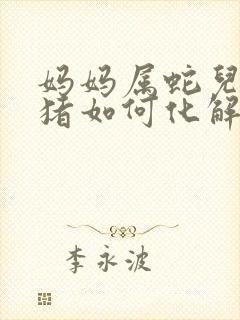 妈妈属蛇兒
猪如何化解
李永波